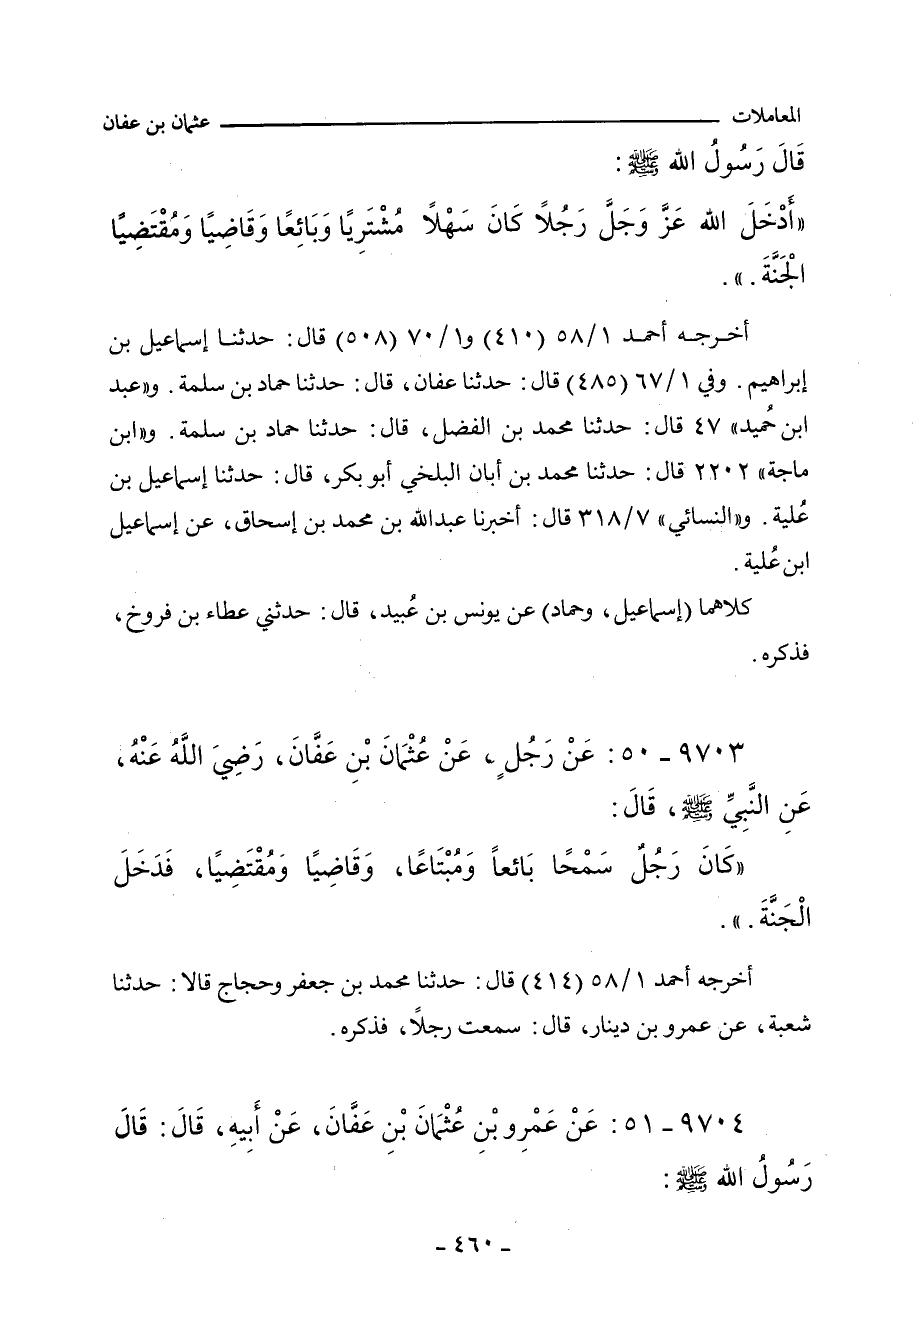 المعاملات ـــــــــــــــــــــــــ عثمان بن عفان
قَالَ رَسُولُ الله ﷺ :
«أَدْخَلَ الله عَزَّ وَجَلَّ رَجُلاً كَانَ سَهْلاً مُشْتَرِيًا وَبَائِعًا وَقَاضِيًا وَمُقْتَضِيًا
الْجَنَّةَ . » .
أخرجه أحمد ١/٥٨ (٤١٠) و١/٧٠ (٥٠٨) قال : حدثنا إسماعيل بن
إبراهيم . وفي ١/٦٧ (٤٨٥) قال : حدثنا عفان ، قال : حدثنا حماد بن سلمة . و«عبد
ابن حُميد» ٤٧ قال : حدثنا محمد بن الفضل ، قال : حدثنا حماد بن سلمة . و«ابن
ماجة» ٢٢٠٢ قال : حدثنا محمد بن أبان البلخي أبو بكر ، قال : حدثنا إسماعيل بن
عُلية . و«النسائي» ٧/٣١٨ قال : أخبرنا عبدالله بن محمد بن إسحاق ، عن إسماعيل
ابن عُلية .
كلاهما (إسماعيل ، وحماد) عن يونس بن عُبيد ، قال : حدثني عطاء بن فروخ ،
فذكره .
٩٧٠٣ ـ ٥٠ : عَنْ رَجُلٍ ، عَنْ عُثْمَانَ بْنِ عَفَّانَ ، رَضِيَ اللَّهُ عَنْهُ ،
عَنِ النَّبِيِّ ﷺ ، قَالَ :
«كَانَ رَجُلٌ سَمْحًا بَائعاً وَمُبْتَاعًا ، وَقَاضِيًا وَمُقْتَضِيًا ، فَدَخَلَ
الْجَنَّةَ . » .
أخرجه أحمد ١/٥٨ (٤١٤) قال : حدثنا محمد بن جعفر وحجاج قالا : حدثنا
شعبة ، عن عمرو بن دينار ، قال : سمعت رجلًا ، فذكره .
٩٧٠٤ ـ ٥١ : عَنْ عَمْرِو بْنِ عُثْمَانَ بْنِ عَفَّانَ ، عَنْ أَبِيهِ ، قَالَ : قَالَ
رَسُولُ الله ﷺ :
ـ ٤٦٠ ـ